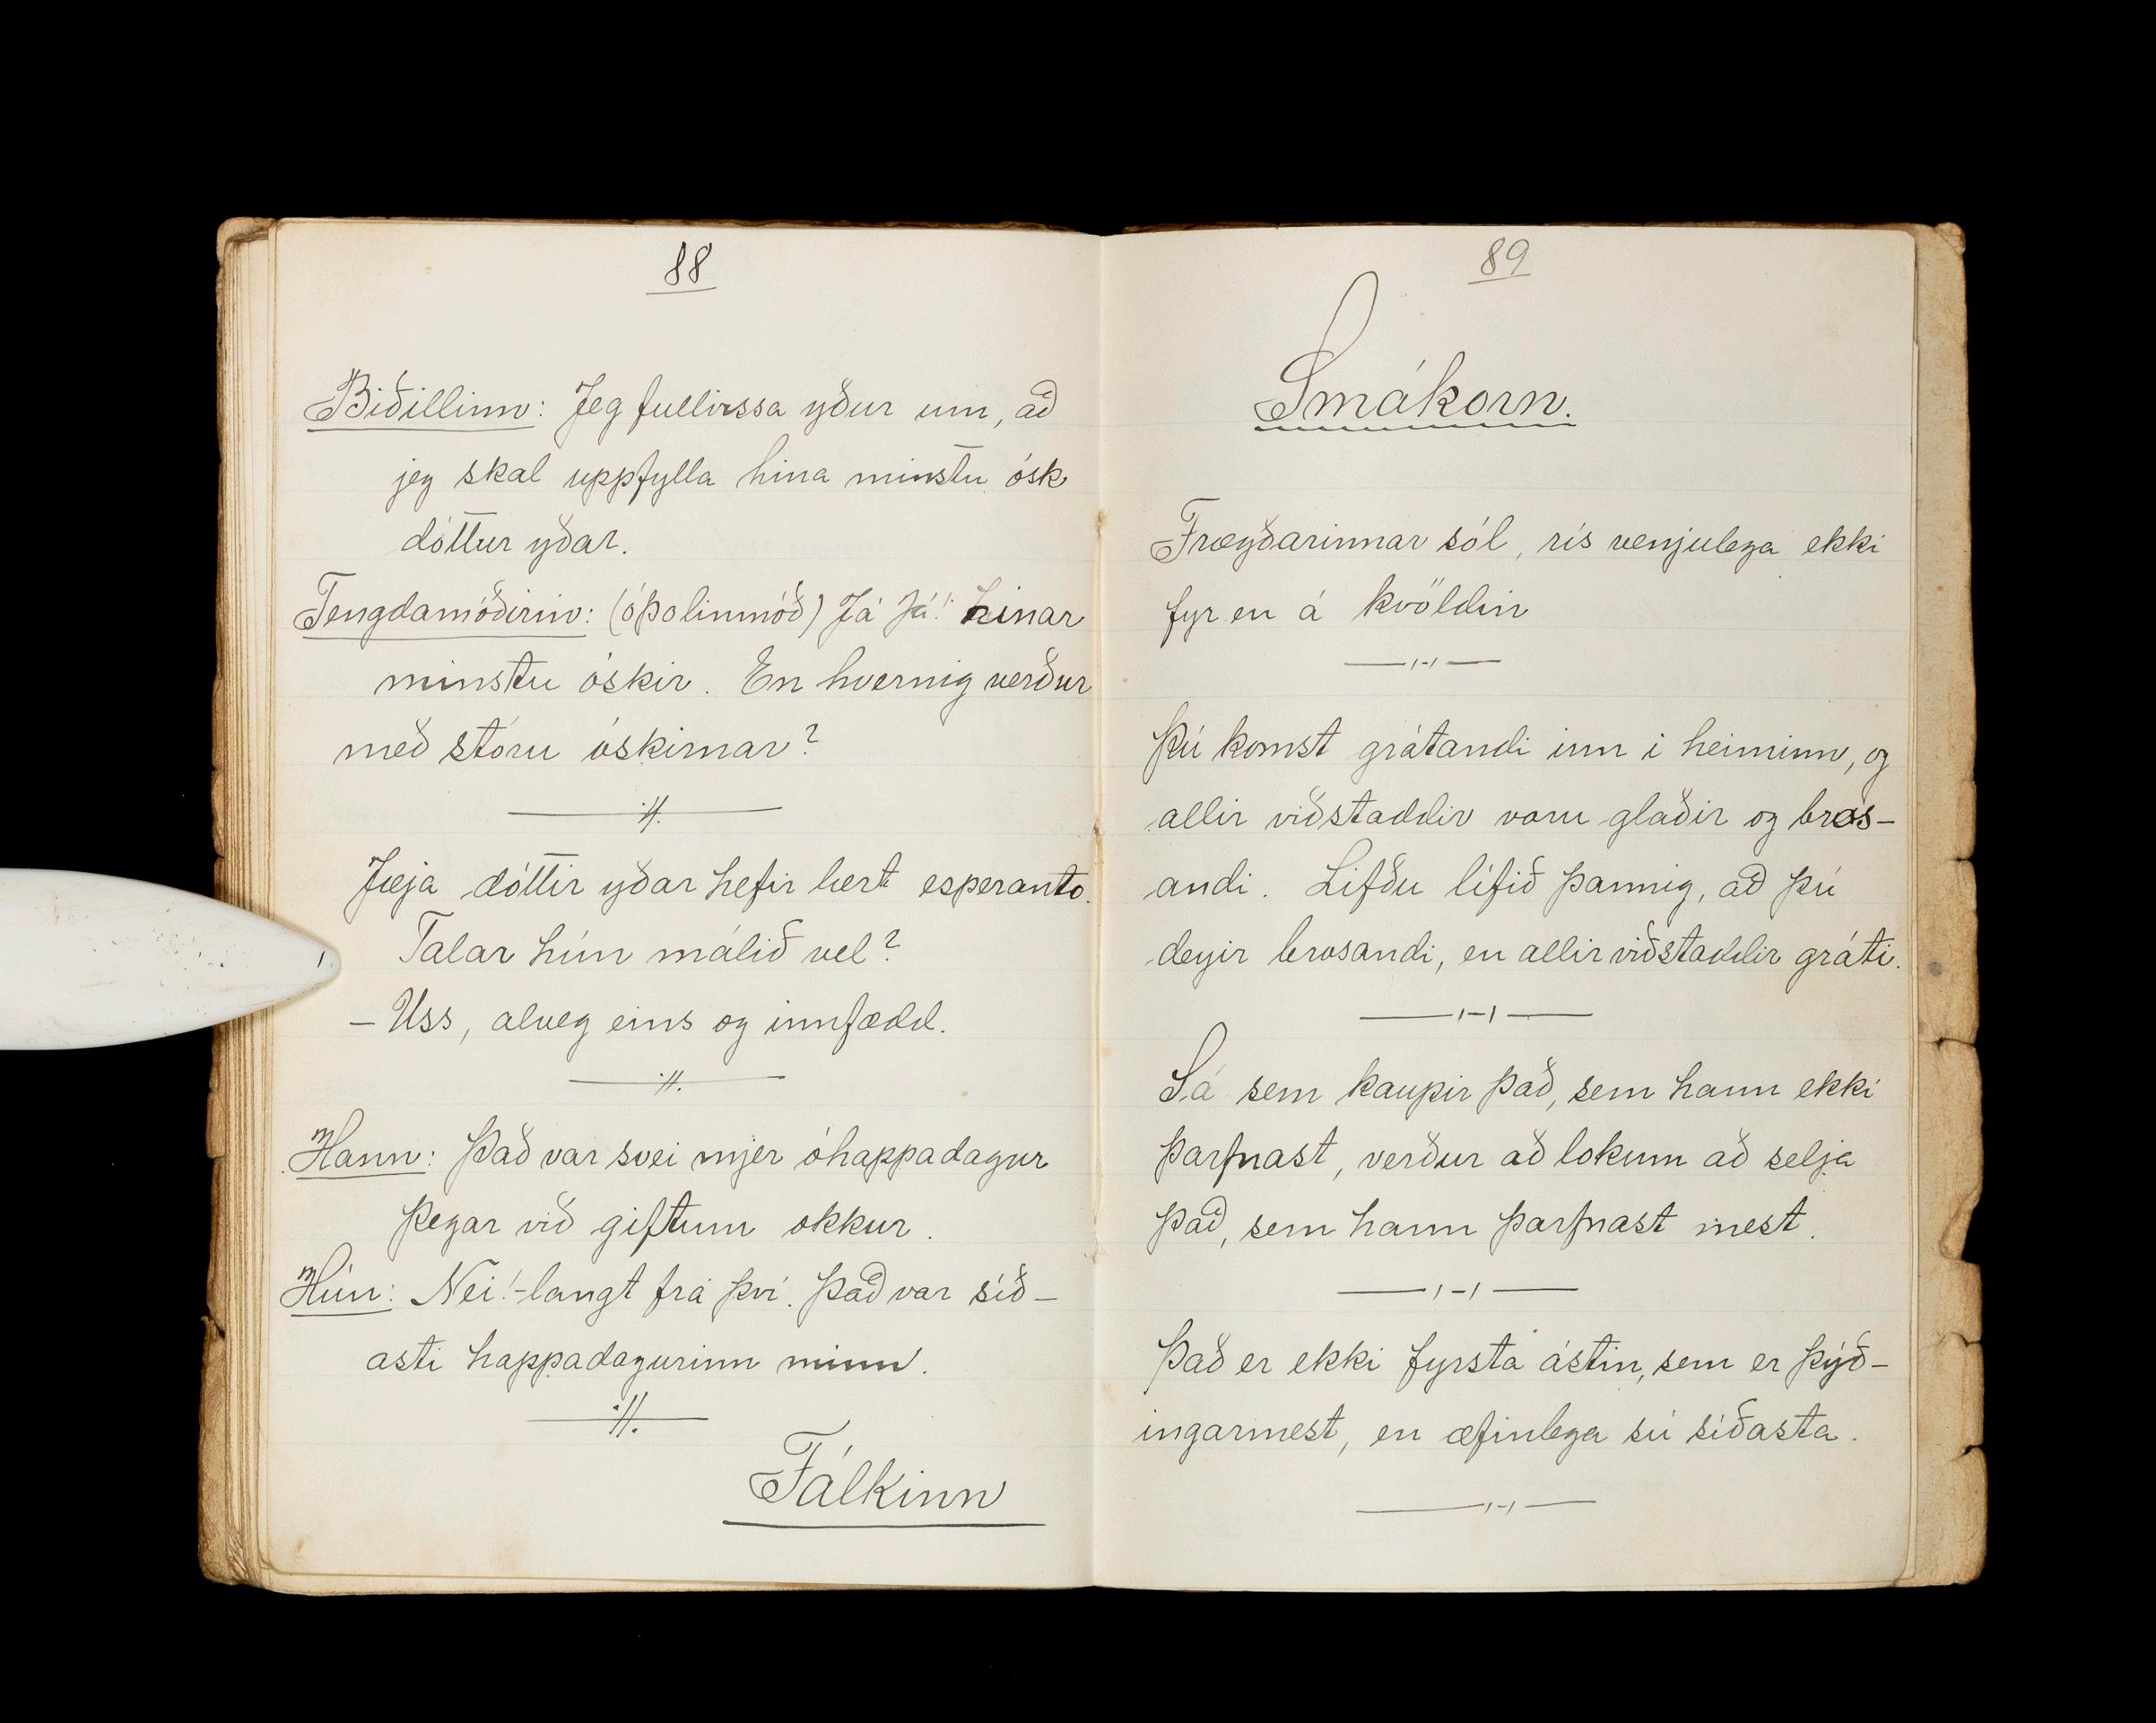 88
Biðillinn: Jeg fullvissa yður um, að
jeg skal uppfylla hina minstu ósk
dóttur yðar.
Tengdamóðirin: (óþolinmóð) Já já! hinar
minstu óskir. En hvernig verður
með stóru óskirnar?
Jæja dóttir yðar hefir lært esperanto.
Talar hún málið vel?
- Uss, alveg eins og innfædd.
Hann: Það var svei mjer óhappadagur
þegar við giftum okkur.
Hún: Nei! - langt frá því. Það var síð-
asti happadagurinn minn.
Fálkinn
89
Smákorn.
Frægðarinnar sól, rís venjulega ekki
fyr en á kvöldin
Þú komst grátandi inn í heiminn, og
allir viðstaddir voru glaðir og bros-
andi. Lifðu lífið þannig, að þú
deyir brosandi, en allir viðstaddir gráti.
Sá sem kaupir það, sem hann ekki
þarfnast, verður að lokum að selja
það, sem hann þarfnast mest.
Það er ekki fyrsta ástin, sem er þýð-
ingarmest, en æfinlega sú síðasta.